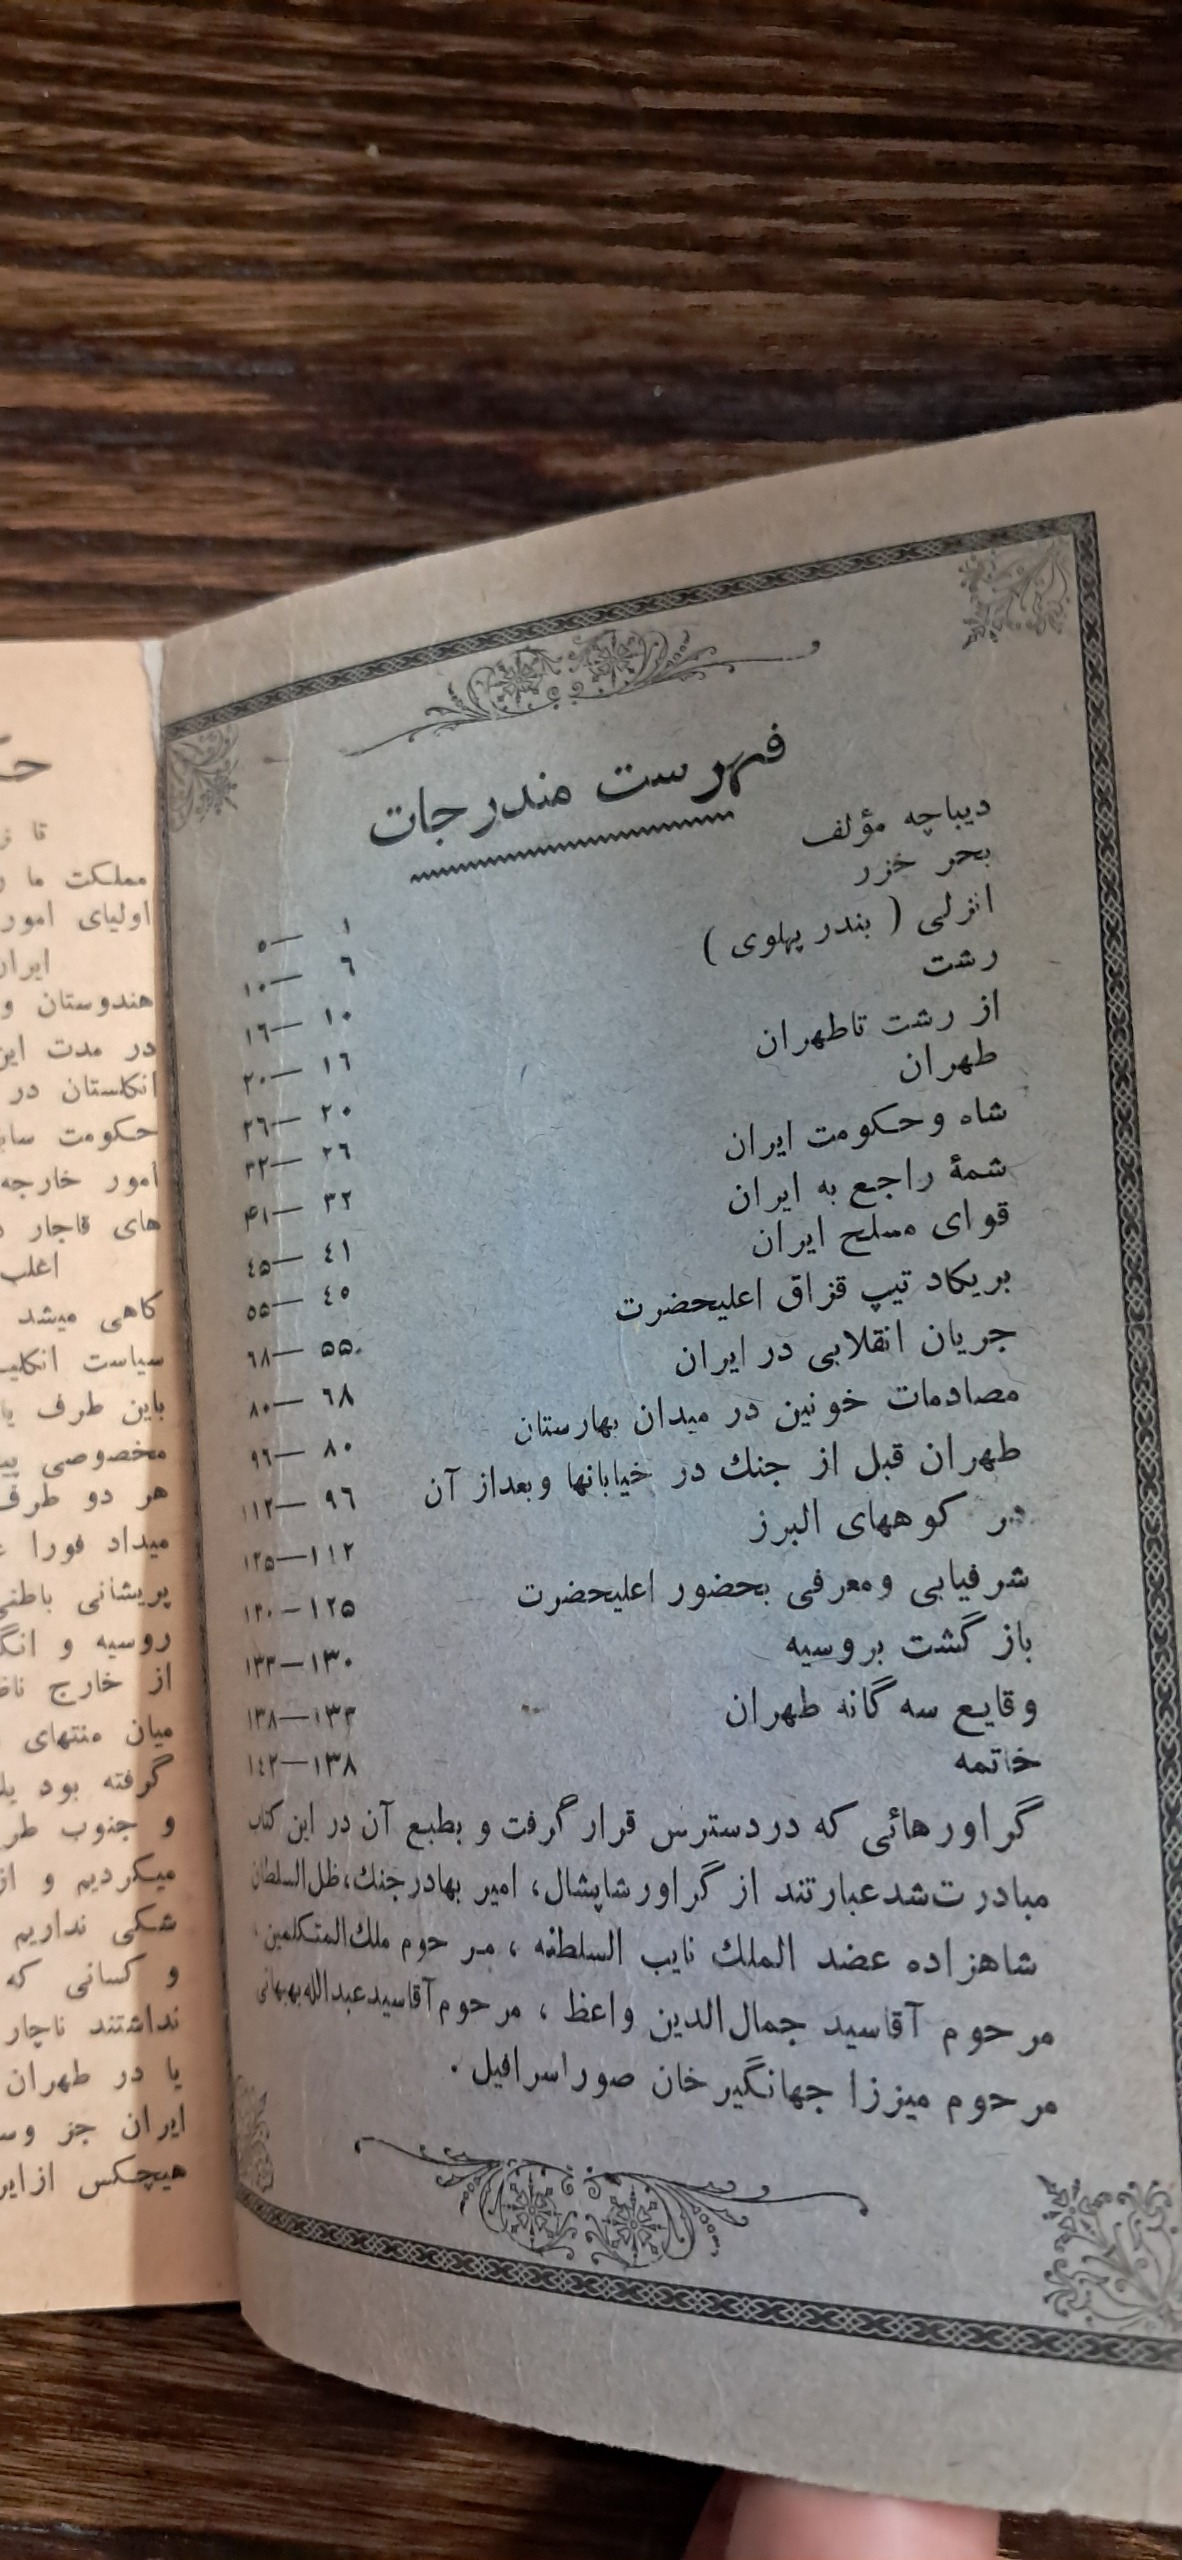 فهرست مندرجات
دیباچه مؤلف
بحر خزر ۱ — ۵
انزلی ( بندر پهلوی ) ٦ — ۱۰
رشت ۱۰ — ۱٦
از رشت تاطهران ۱٦ — ۲۰
طهران ۲۰ — ۲٦
شاه و حکومت ایران ۲٦ — ۳۲
شمهٔ راجع به ایران ۳۲ — ۴۱
قوای مسلح ایران ٤۱ — ٤۵
بریکاد تیپ قزاق اعلیحضرت ٤۵ — ۵۵
جریان انقلابی در ایران ۵۵ — ٦۸
مصادمات خونین در میدان بهارستان ٦۸ — ۸۰
طهران قبل از جنك در خیابانها و بعداز آن ۸۰ — ۹٦
در کوههای البرز ۹٦ — ۱۱۲
شرفیابی و معرفی بحضور اعلیحضرت ۱۱۲ — ۱۲۵
باز گشت بروسیه ۱۲۵ — ۱۳۰
وقایع سه گانه طهران ۱۳۰ — ۱۳۳
خاتمه ۱۳۳ — ۱۳۸
۱۳۸ — ۱٤۲
گراورهائی که در دسترس قرار گرفت و بطبع آن در این کتاب
مبادرت شد عبارتند از گراور شاپشال، امیر بهادر جنك، ظل السلطان
شاهزاده عضد الملك نایب السلطنه ، مرحوم ملك المتکلمین،
مرحوم آقاسید جمال الدین واعظ ، مرحوم آقاسید عبدالله بهبهانی
مرحوم میرزا جهانگیر خان صوراسرافیل .
تا
مملکت ما
اولیای امور
ایران
هندوستان و
در مدت این
انکلستان در
حکومت
امور خارجه
های قاجار
اغلب
کاهی میشد
سیاست
باین طرف
مخصوصی
هر دو طرف
میداد فورا
پریشانی باطنی
روسیه و
از خارج
میان منتهای
گرفته بود
و جنوب
میکردیم و از
شکی نداریم
و کسانی که
نداشتند ناچار
یا در طهران
ایران جز
هیچکس